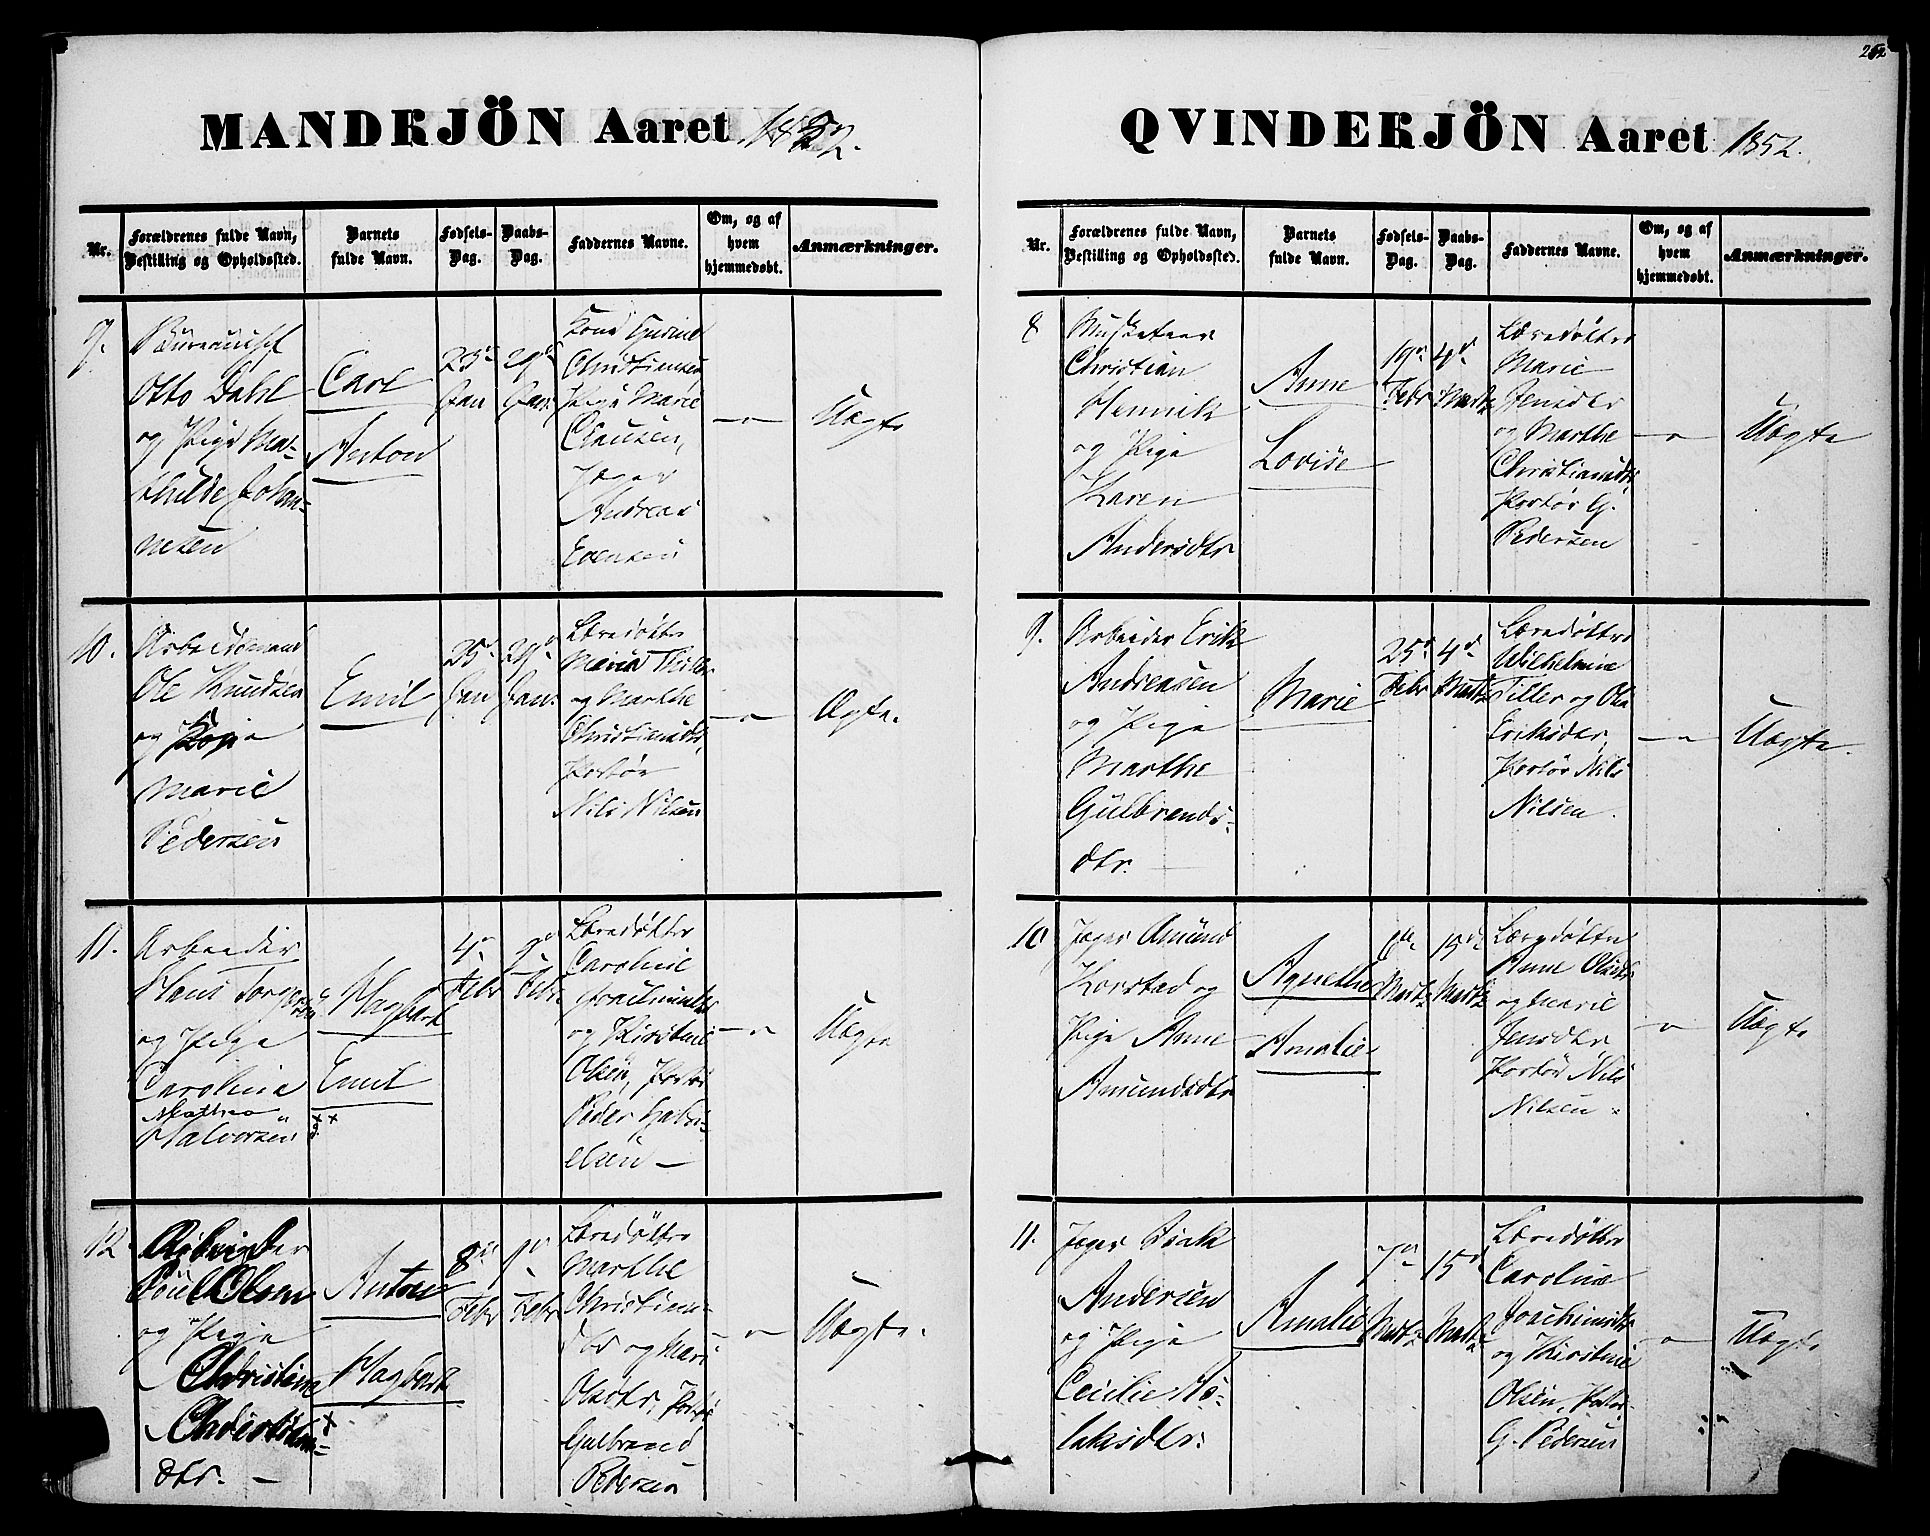 252
MANDKJÖN Aaret 1852.
Nr.
Forældrenes fulde Navn,
Bestilling og Opholdssted.
Barnets
fulde Navn.
Fødsels-
Dag.
Daabs-
Dag.
Faddernes Navne.
Om, og af
hvem
hjemmedøbt.
Anmærkninger.
9.
Otto Dahl
og Pige Ma-
thilde Johan-
nesen
Carl
Anton
23de
Jan
29de
Jan.
Kone
Christiansen
Pige Marie
Clausen,
Jæger
Andreas
Evensen
— " —
Uægte
10.
Arbeidsmand
Ole Knudsen
og Kone
Marie
Pedersen
Emil
25de
Jan
29de
Jan.
Læredøttre
Maria Thiller
og Marthe
Christiansdtr,
Portør
Nils Nilsen
— " —
Ægte.
11.
Arbeider
Hans Torgersen
og Pige
Carolina
Mathea
Halvorsen
Hagbart
Emil
4de
Febr
9de
Febr
Læredøttre
Caroline
Joachimsdtr
og Kirstine
Olsen, Portør
Peder Gabri-
elsen —
— " —
Uægte
12.
Arbeider
Poul Olsen
og Pige
Christine
Christians-
dtr. —
Anton
Hagbart
8de
Febr
9de
Febr
Læredøttre
Marthe
Christians-
dtr og Mari
Olsdtr, Portør
Gulbrand
Pedersen
— " —
Uægte.
QVINDEKJÖN Aaret 1852.
Nr.
Forældrenes fulde Navn,
Bestilling og Opholdssted.
Barnets
fulde Navn.
Fødsels-
Dag.
Daabs-
Dag.
Faddernes Navne.
Om, og af
hvem
hjemmedøbt.
Anmærkninger.
8
Musketeer
Christian
Henrik
og Pige
Karen
Andersdtr
Anne
Lovise
19de
Febr
4de
Marts
Læredøttre
Marie
Jensdtr
og Marthe
Christiansdtr,
Portør G.
Pedersen
— " —
Uægte
9.
Arbeider Erik
Andreasen
og Pige
Marthe
Gulbrands-
dtr. —
Marie
25de
Febr
4de
Marts
Læredøttre
Wilhelmine
Tiller og Olea
Eriksdtr,
Portør Nils
Nilsen.
— " —
Uægte.
10
Jæger Amund
Korstad og
Pige Anne
Amundsdtr
Agnethe
Amalie
6te
Marts
15de
Marts
Læredøttre
Anne Olsdtr
og Marie
Jensdtr
Portør Nils
Nilsen
— " —
Uægte
11.
Jæger Isak
Andersen
og Pige
Cecilie Is-
laksdtr.
Amalie
7de
Marts
15de
Marts
Læredøttre
Caroline
Joachimsdtr
og Kirstine
Olsen, Portør
G. Pedersen
— " —
Uægte